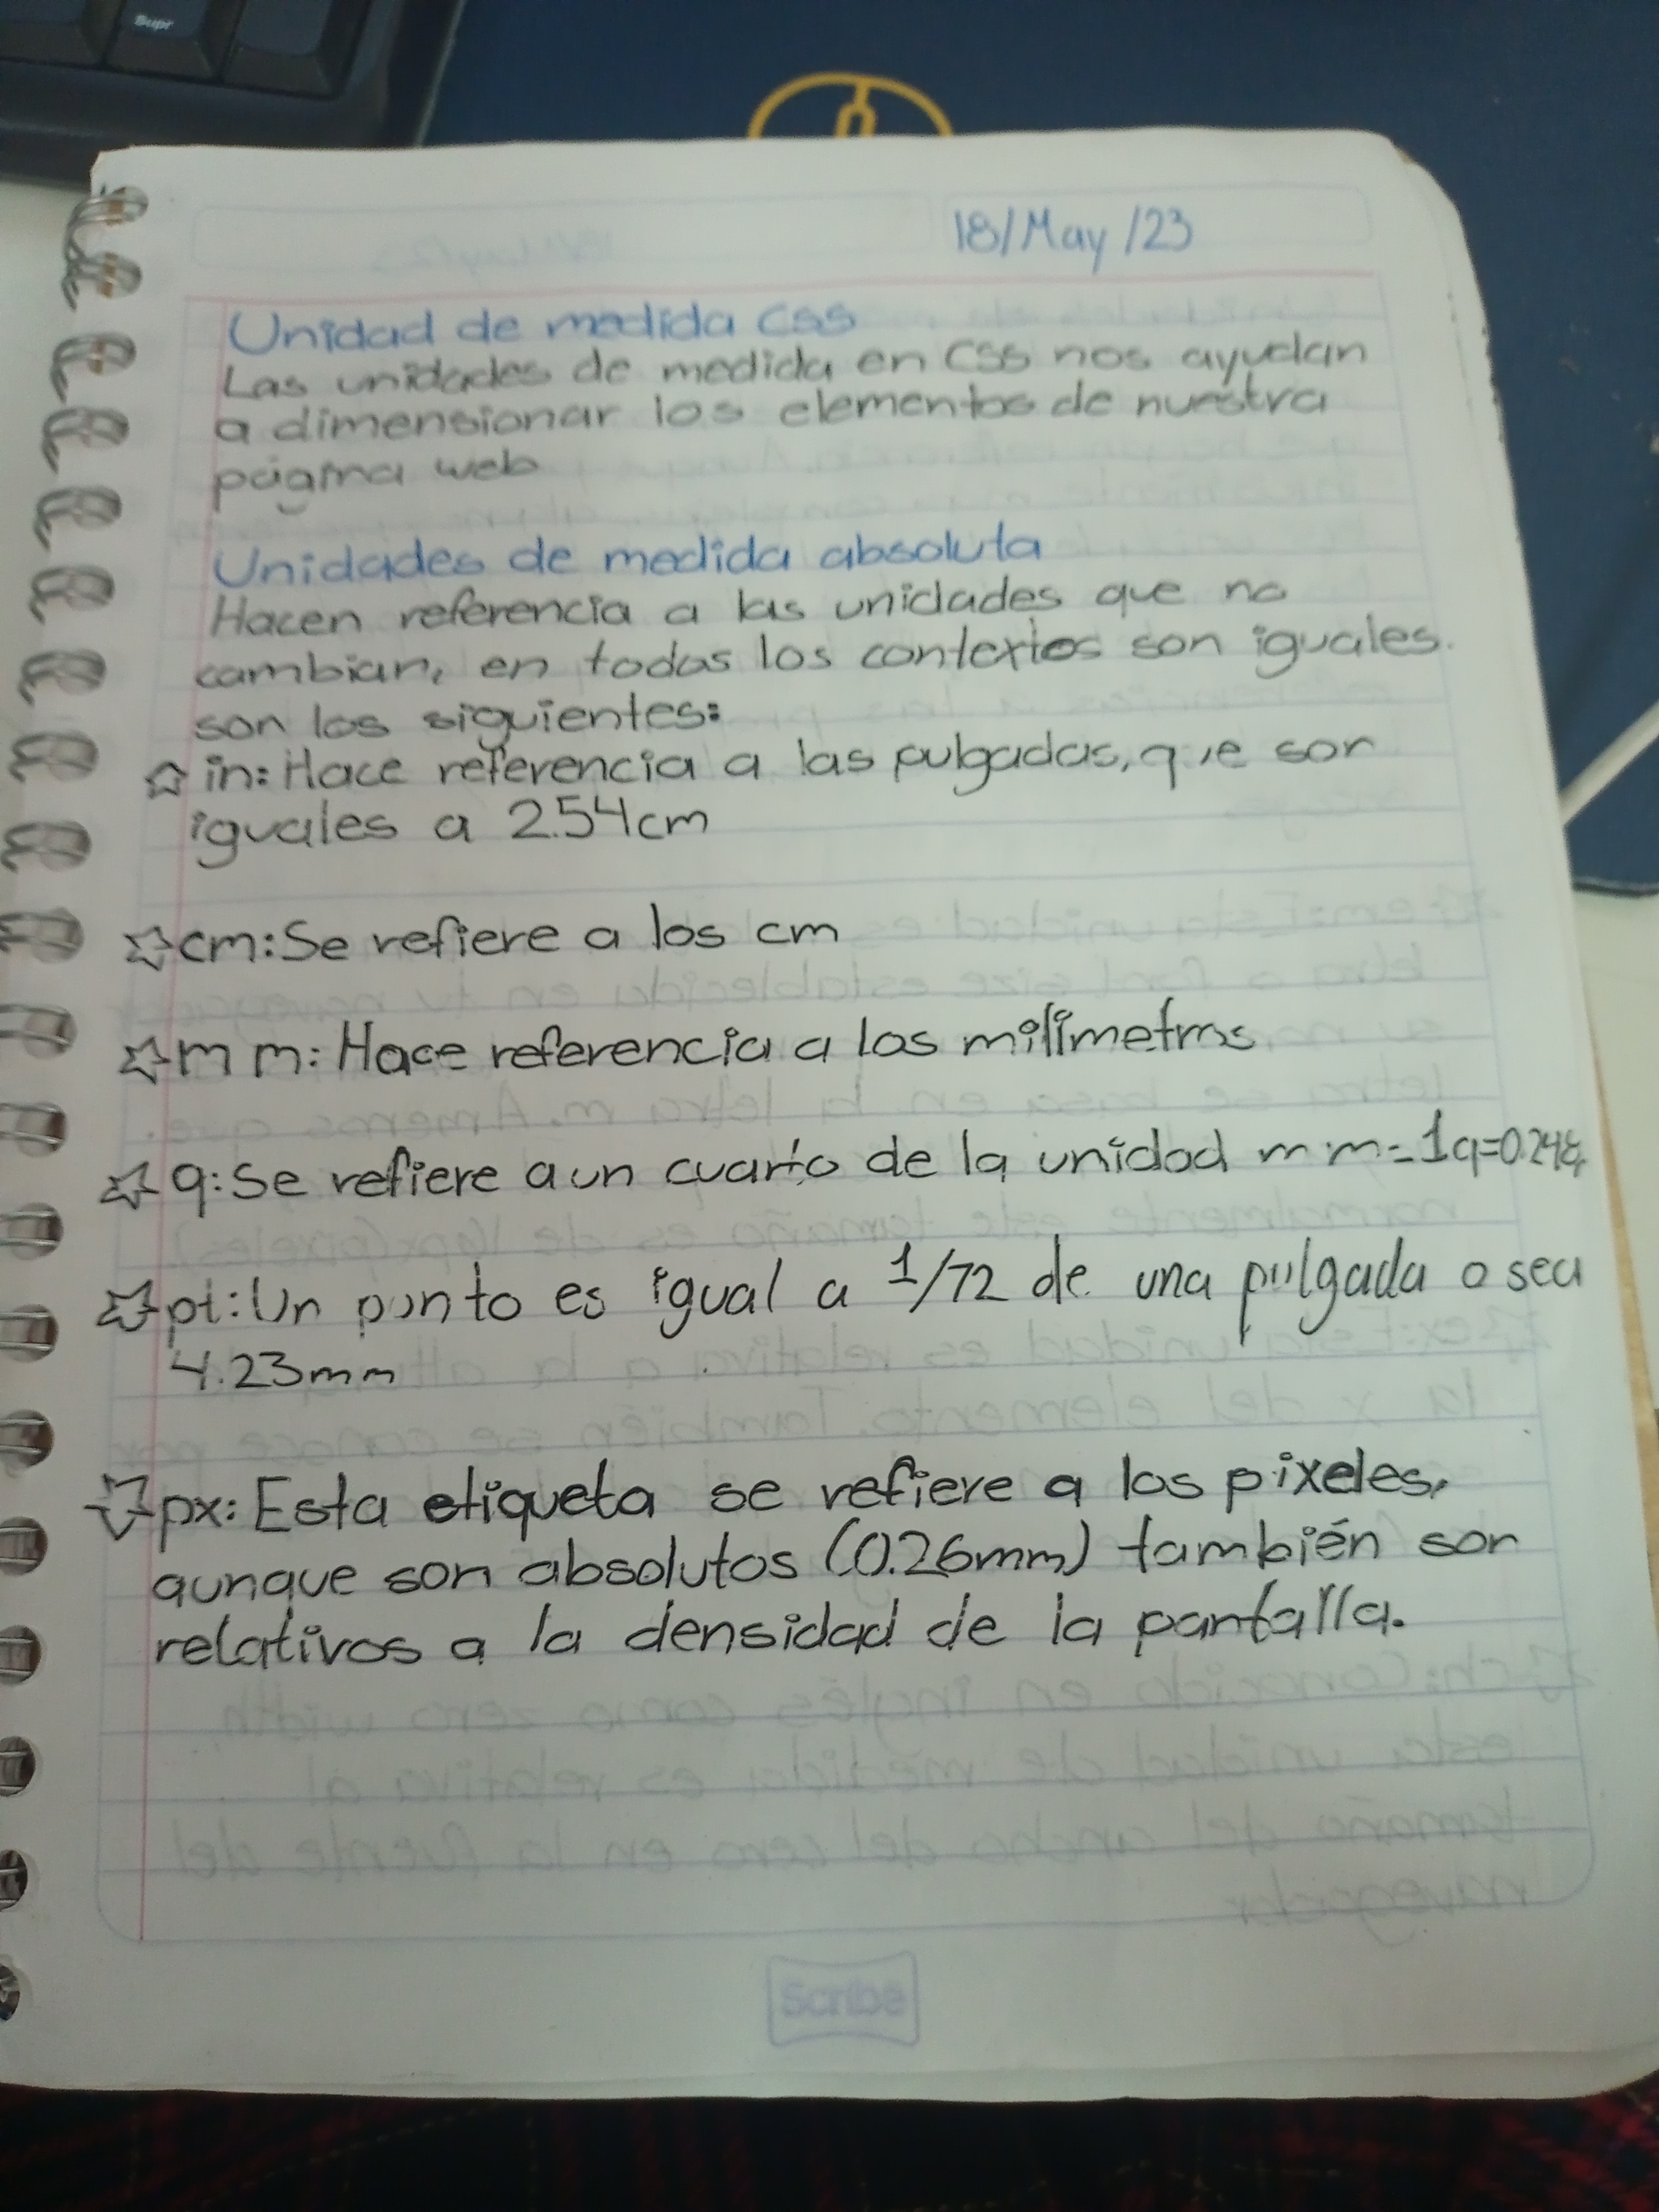 Supr
18/May/23
Unidad de medida CSS
Las unidades de medida en CSS nos ayudan
a dimensionar los elementos de nuestra
página web
Unidades de medida absoluta
Hacen referencia a las unidades que no
cambian, en todos los contextos son iguales.
son los siguientes:
in: Hace referencia a las pulgadas, que son
iguales a 2.54cm
cm: Se refiere a los cm
mm: Hace referencia a los milímetros
q: Se refiere a un cuarto de la unidad mm= 1q=
pt: Un punto es igual a 1/72 de una pulgada o sea
4.23mm
px: Esta etiqueta se refiere a los pixeles,
aunque son absolutos (0.26mm) también son
relativos a la densidad de la pantalla.
Scribe